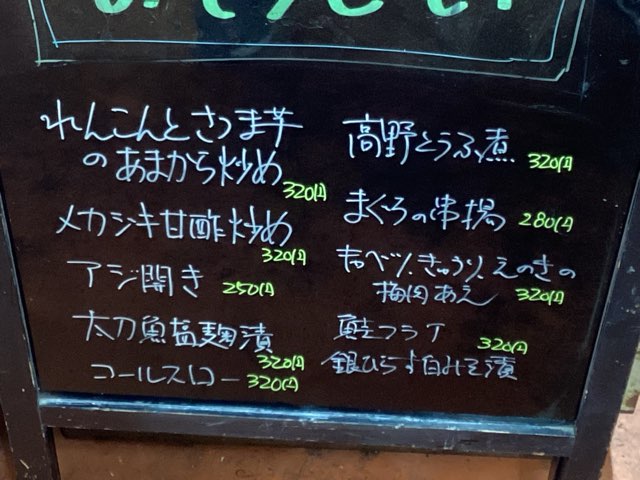 れんこんとさつま芋
のあまから炒め
320円
メカジキ甘酢炒め
320円
アジ開き 250円
太刀魚塩麹漬
320円
コールスロー 320円
高野とうふ煮 320円
まぐろの串揚 280円
キャベツ、きゅうり、えのきの
梅肉あえ 320円
鮭フライ 320円
銀ひらす白みそ漬